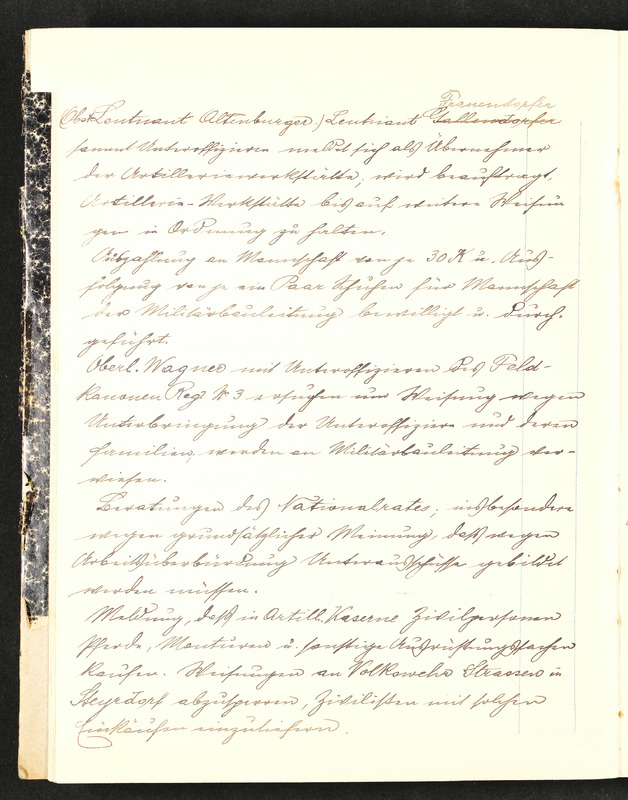 Frauendorfer
Obstleutnant Altenburger) Leutnant Sallendorfer
sammt Unteroffizieren meldet sich als Übernehmer
der Artilleriewerkstätte; wird beauftragt,
Artillerie-Werkstätte bis auf weitere Weisun
gen in Ordnung zu halten.
Auszahlung an Mannschaft von je 30 K u. Aus-
folgung von je ein Paar Schuhen für Mannschaft
der Militärbauleitung bewilligt u. durch-
geführt.
Oberl. Wagner mit Unteroffizieren des Feld-
kanonen Reg. Nr 3 ersuchen um Weisung wegen
Unterbringung der Unteroffiziere und deren
Familien, werden an Militärbauleitung ver-
wiesen.
Beratungen des Nationalrates; insbesondere
wegen grundsätzlicher Meinung, daß wegen
Arbeitsüberbürdung Unterausschüsse gebildet
werden müssen.
Meldung, daß in Artill. Kaserne Zivilpersonen
Pferde, Monturen u. sonstige Ausrüstungssachen
kaufen. Weisungen an Volkswehr Strassen in
Steyrdorf abzusperren, Zivilisten mit solchen
Einkäufen einzuliefern.